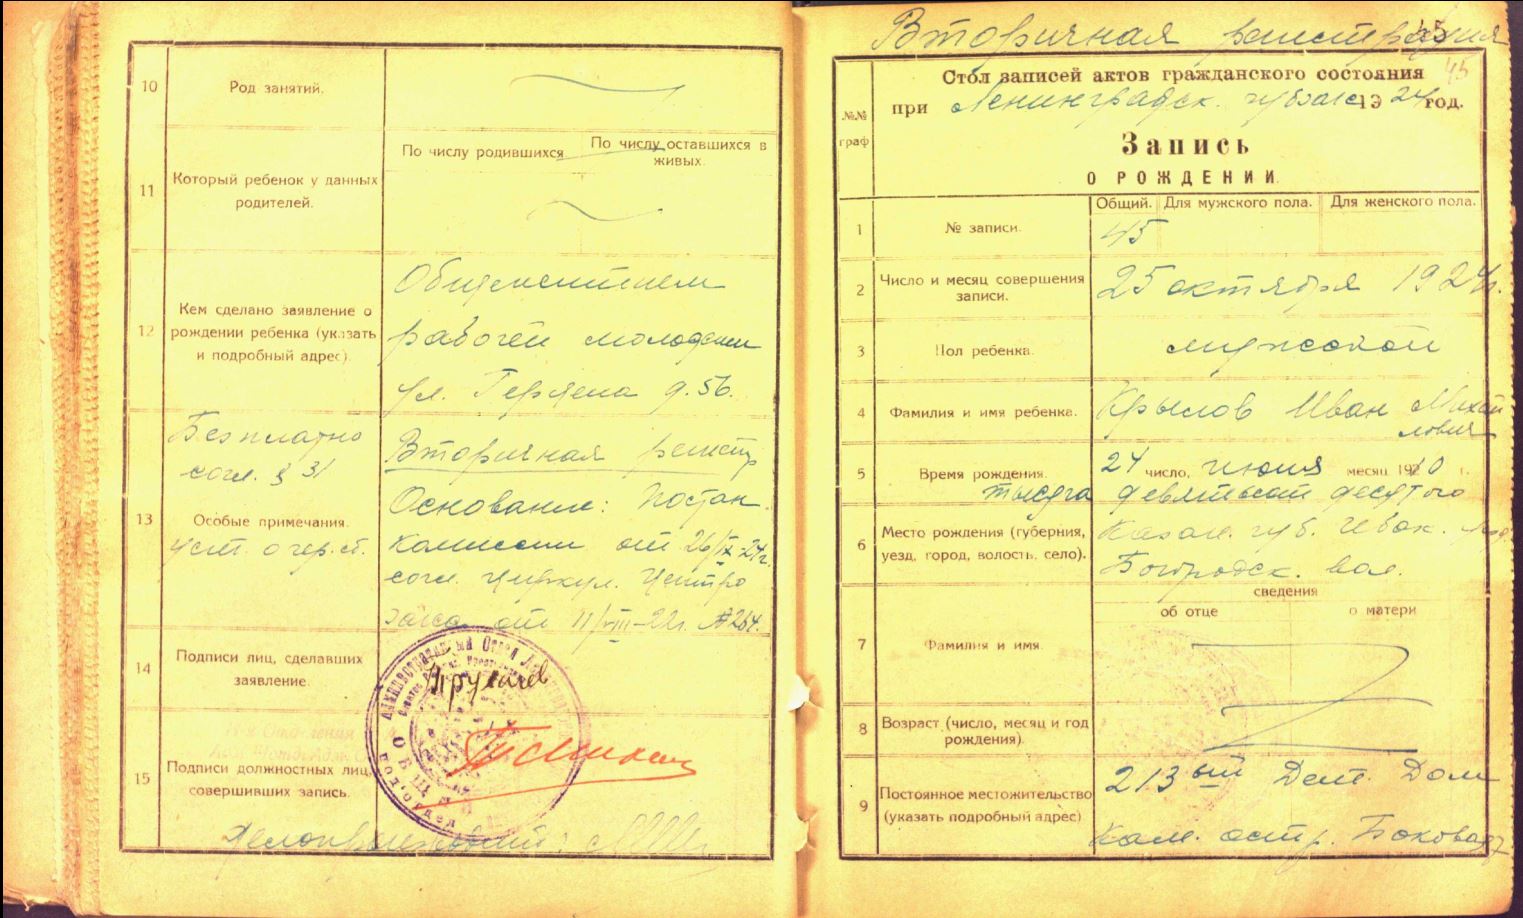 10
Род занятий.
11
Который ребенок у данных
родителей.
По числу родившихся
По числу оставшихся в
живых.
12
Кем сделано заявление о
рождении ребенка (указать
и подробный адрес).
Общежитием
рабочей молодежи
ул. Герцена д. 56.
13
Безплатно
согл. § 31
Особые примечания.
уст. о гер. сб.
Вторичная регистр
Основание: Постан.
Комиссии от 26/IX-24г.
согл. циркул. Центро
загса от 11/VIII-22г. № 264.
14
Подписи лиц, сделавших
заявление.
15
Подписи должностных лиц,
совершивших запись.
Делопроизводитель
Вторичная регистрация
45
45
Стол записей актов гражданского состояния
при Ленинградск. губзагсе 1924 год.
№№
граф
Запись
О РОЖДЕНИИ.
Общий.
Для мужского пола.
Для женского пола.
1
№ записи.
45
2
Число и месяц совершения
записи.
25 октября 1924г.
3
Пол ребенка.
мужской
4
Фамилия и имя ребенка.
Крылов Иван Михай
лович
5
Время рождения.
24 число, июня месяц 1910 г.
тысяча девятьсот десятого
6
Место рождения (губерния,
уезд, город, волость, село).
Казан. губ. Чебок. уезд
Богородск. вол.
сведения
об отце
о матери
7
Фамилия и имя.
8
Возраст (число, месяц и год
рождения).
9
Постоянное местожительство
(указать подробный адрес)
213ый Дет. Дом
Кам. остр. Боковая 7